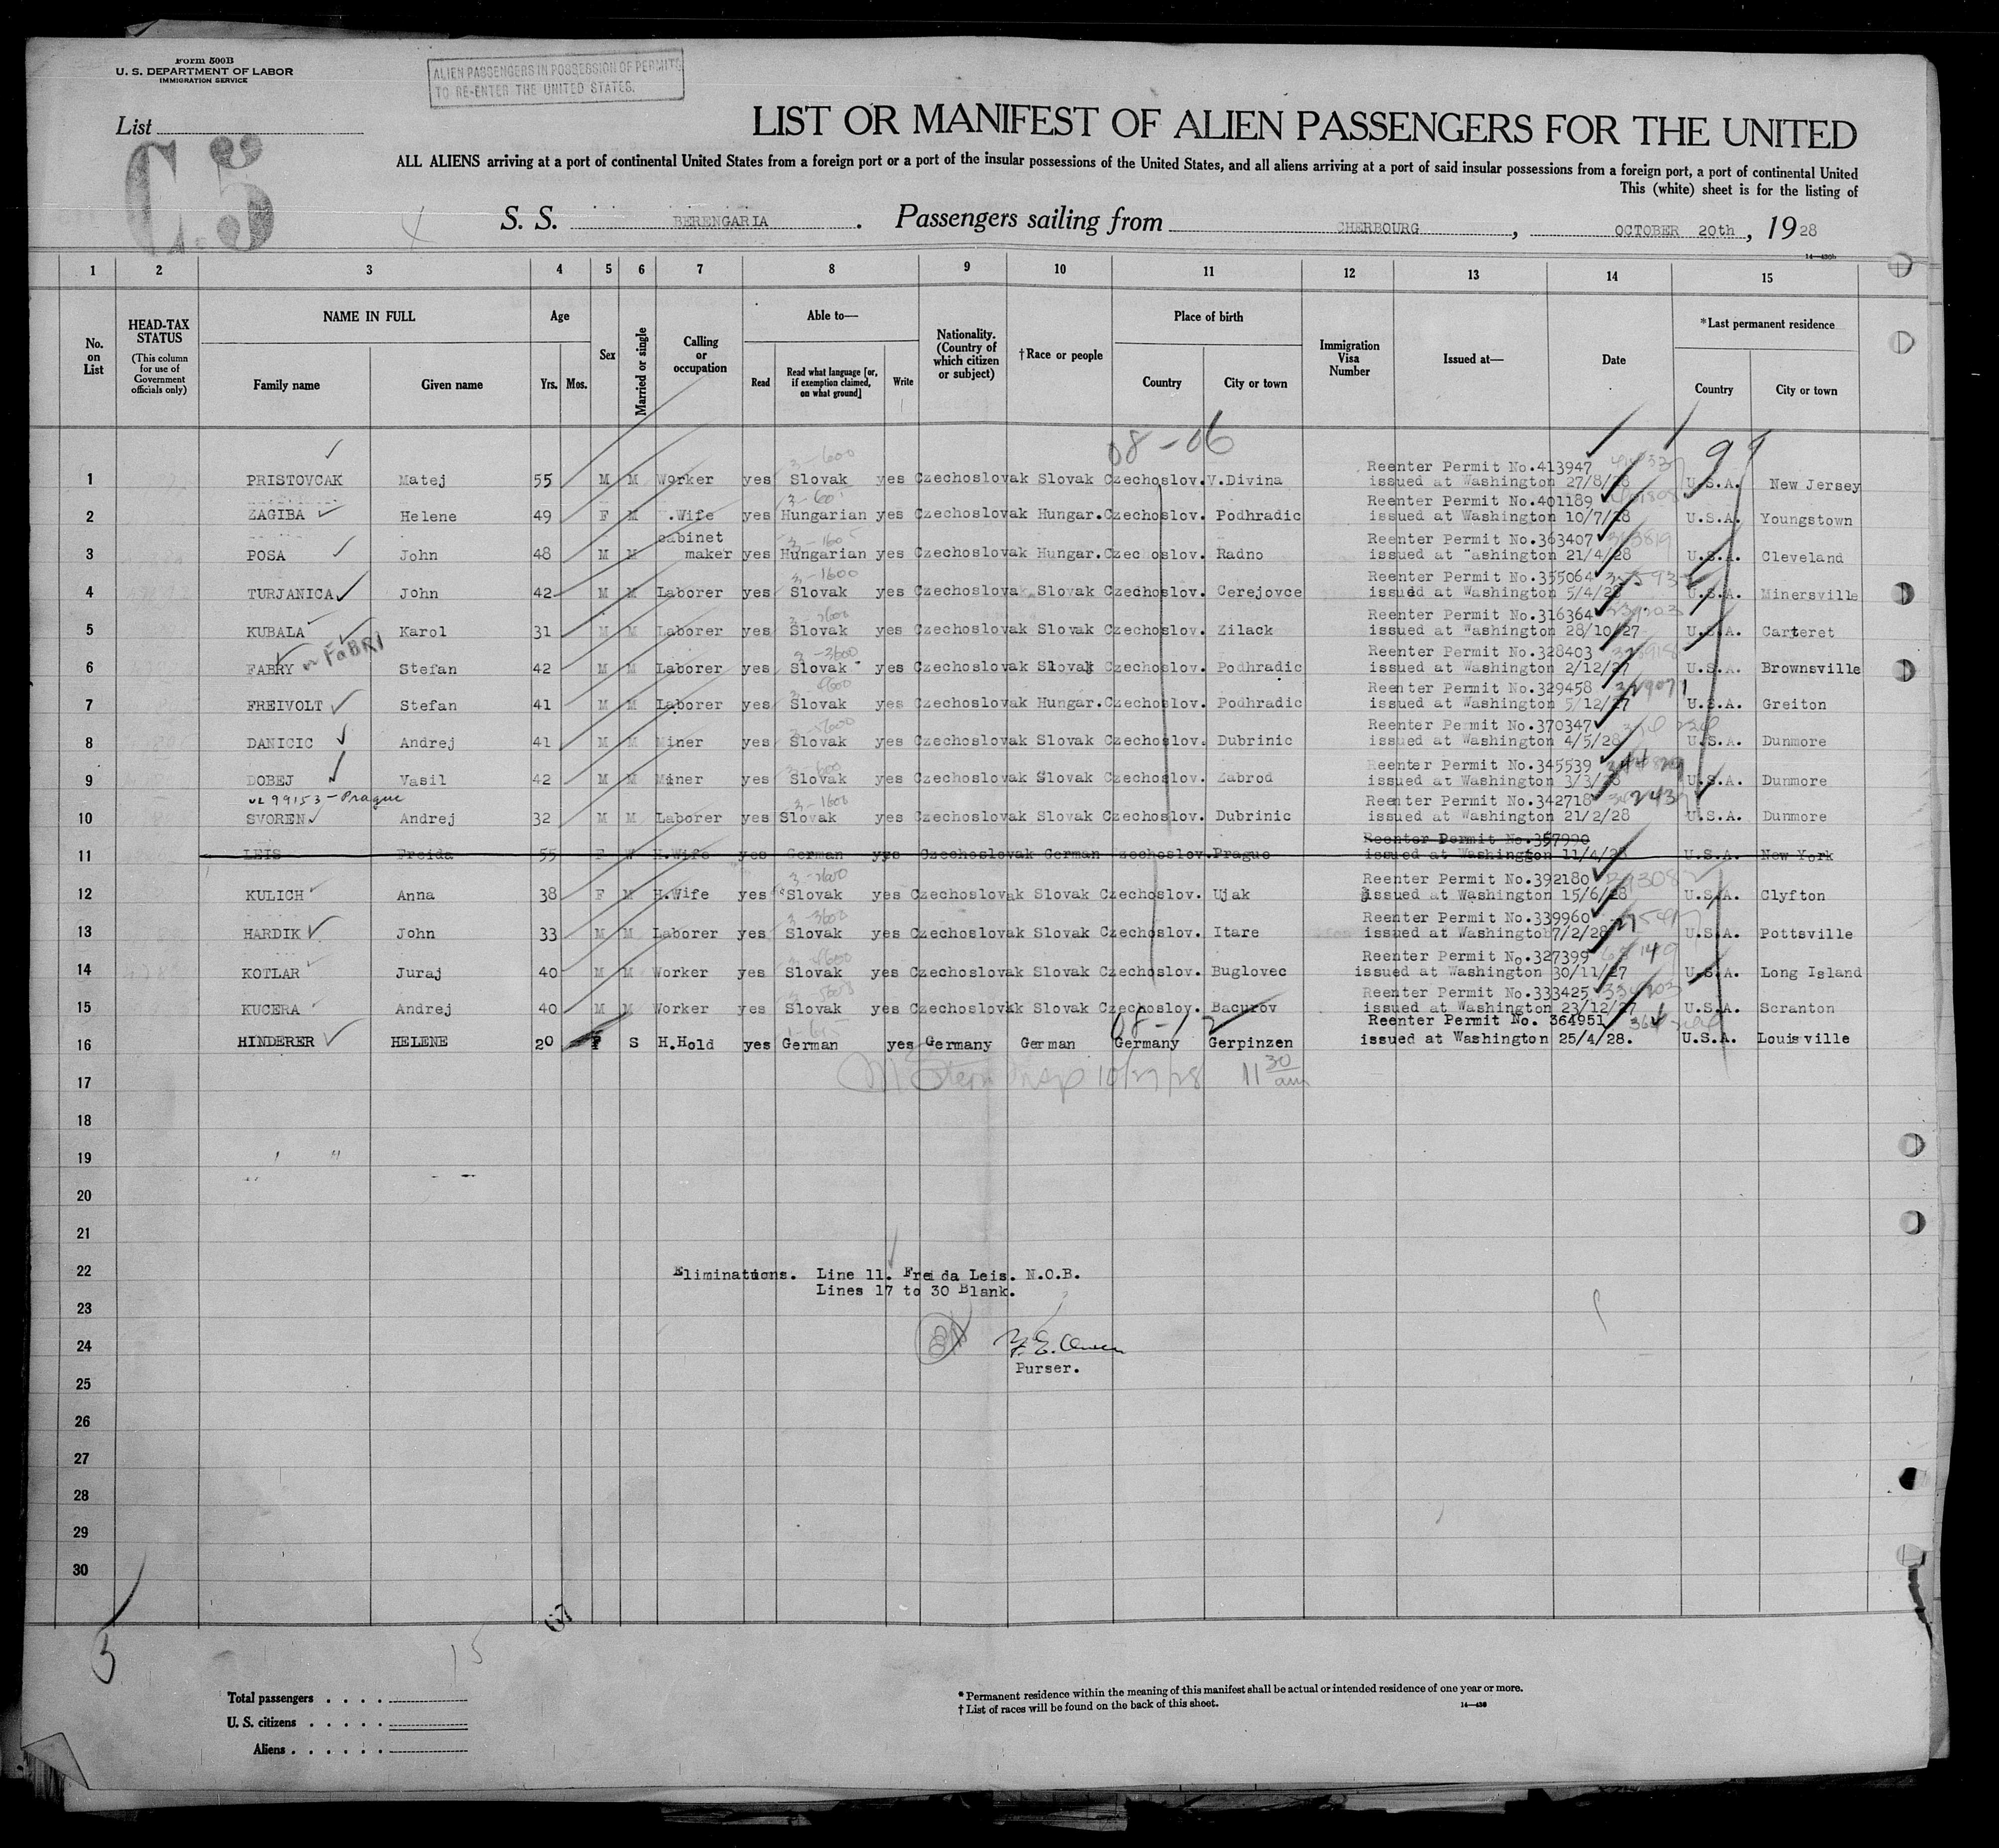 Form 500B
U. S. DEPARTMENT OF LABOR
IMMIGRATION SERVICE
ALIEN PASSENGERS IN POSSESSION OF PERMITS
TO RE-ENTER THE UNITED STATES.
List
C.5
LIST OR MANIFEST OF ALIEN PASSENGERS FOR THE UNITED
ALL ALIENS arriving at a port of continental United States from a foreign port or a port of the insular possessions of the United States, and all aliens arriving at a port of said insular possessions from a foreign port, a port of continental United
This (white) sheet is for the listing of
S. S. BERENGARIA. Passengers sailing from CHERBOURG, OCTOBER 20th, 1928
14—430b
1 2 3 4 5 6 7 8 9 10 11 12 13 14 15
No. on List
HEAD-TAX STATUS (This column for use of Government officials only)
NAME IN FULL
Family name Given name
Age
Yrs. Mos.
Sex
Married or single
Calling or occupation
Able to—
Read Read what language [or, if exemption claimed, on what ground] Write
Nationality. (Country of which citizen or subject)
†Race or people
Place of birth
Country City or town
Immigration Visa Number
Issued at—
Date
*Last permanent residence
Country City or town
08-06
99
Reenter Permit No.413947
1 PRISTOVCAK Matej 55 M M Worker yes Slovak yes Czechoslovak Slovak Czechoslov. V.Divina issued at Washington 27/8/28 U.S.A. New Jersey
Reenter Permit No.401189
2 ZAGIBA Helene 49 F M .Wife yes Hungarian yes Czechoslovak Hungar. Czechoslov. Podhradic issued at Washington 10/7/28 U.S.A. Youngstown
cabinet Reenter Permit No.363407
3 POSA John 48 M M maker yes Hungarian yes Czechoslovak Hungar. Czechoslov. Radno issued at "ashington 21/4/28 U.S.A. Cleveland
Reenter Permit No.355064
4 TURJANICA John 42 M M Laborer yes Slovak yes Czechoslovak Slovak Czechoslov. Cerejovce issued at Washington 5/4/28 U.S.A. Minersville
Reenter Permit No.316364
5 KUBALA Karol 31 M M Laborer yes Slovak yes Czechoslovak Slovak Czechoslov. Zilack issued at Washington 28/10/27 U.S.A. Carteret
or FABRI
Reenter Permit No.328403
6 FABRY Stefan 42 M M Laborer yes Slovak yes Czechoslovak Slovak Czechoslov. Podhradic issued at Washington 2/12/27 U.S.A. Brownsville
Reenter Permit No.329458
7 FREIVOLT Stefan 41 M M Laborer yes Slovak yes Czechoslovak Hungar. Czechoslov. Podhradic issued at Washington 5/12/27 U.S.A. Greiton
Reenter Permit No.370347
8 DANICIC Andrej 41 M M Miner yes Slovak yes Czechoslovak Slovak Czechoslov. Dubrinic issued at Washington 4/5/28 U.S.A. Dunmore
Reenter Permit No.345539
9 DOBEJ Vasil 42 M M Miner yes Slovak yes Czechoslovak Slovak Czechoslov. Zabrod issued at Washington 3/3/28 U.S.A. Dunmore
99153 - Prague
Reenter Permit No.342718
10 SVOREN Andrej 32 M M Laborer yes Slovak yes Czechoslovak Slovak Czechoslov. Dubrinic issued at Washington 21/2/28 U.S.A. Dunmore
Reenter Permit No.357990
11 LEIS Freida 55 F W H.Wife yes German yes Czechoslovak German Czechoslov. Prague issued at Washington 11/4/28 U.S.A. New York
Reenter Permit No.392180
12 KULICH Anna 38 F M H.Wife yes Slovak yes Czechoslovak Slovak Czechoslov. Ujak issued at Washington 15/6/28 U.S.A. Clyfton
Reenter Permit No.339960
13 HARDIK John 33 M M Laborer yes Slovak yes Czechoslovak Slovak Czechoslov. Itare issued at Washington 7/2/28 U.S.A. Pottsville
Reenter Permit No.327399
14 KOTLAR Juraj 40 M M Worker yes Slovak yes Czechoslovak Slovak Czechoslov. Buglovec issued at Washington 30/11/27 U.S.A. Long Island
Reenter Permit No.333425
15 KUCERA Andrej 40 M M Worker yes Slovak yes Czechoslovak Slovak Czechoslov. Bacurov issued at Washington 23/12/27 U.S.A. Scranton
08-12
Reenter Permit No. 364951
16 HINDERER HELENE 20 F S H.Hold yes German yes Germany German Germany Gerpinzen issued at Washington 25/4/28. U.S.A. Louisville
10/27/28 11 30 am
17
18
19
20
21
22 Eliminations. Line 11. Freida Leis. N.O.B.
Lines 17 to 30 Blank.
23
24
Purser.
25
26
27
28
29
30
5
15
67
Total passengers
U. S. citizens
Aliens
* Permanent residence within the meaning of this manifest shall be actual or intended residence of one year or more.
† List of races will be found on the back of this sheet.
14—430